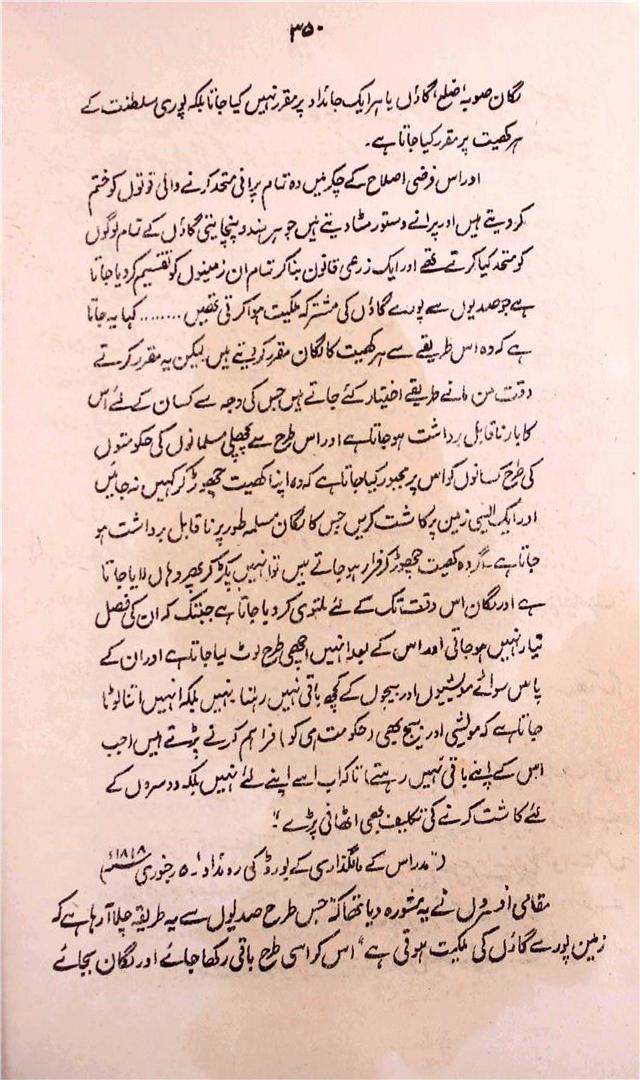 ۳۵۰
لگان صوبہ، ضلع، گاؤں یا ہر ایک جائداد پر مقرر نہیں کیا جاتا بلکہ پوری سلطنت کے
ہر کھیت پر مقرر کیا جاتا ہے۔
اور اس فرضی اصلاح کے چکر میں وہ تمام پرانی متحد کرنے والی قوتوں کو ختم
کر دیتے ہیں اور پرانے دستور مٹا دیتے ہیں جو ہر ہندو پنچایتی گاؤں کے تمام لوگوں
کو متحد کیا کرتے تھے اور ایک زرعی قانون بنا کر تمام ان زمینوں کو تقسیم کر دیا جاتا
ہے جو صدیوں سے پورے گاؤں کی مشترکہ ملکیت ہوا کرتی تھیں ........ کہا یہ جاتا
ہے کہ وہ اس طریقے سے ہر کھیت کا لگان مقرر کر دیتے ہیں لیکن یہ مقرر کرتے
وقت من مانے طریقے اختیار کئے جاتے ہیں جس کی وجہ سے کسان کے لئے اس
کا بار ناقابل برداشت ہو جاتا ہے اور اس طرح سے پچھلی مسلمانوں کی حکومتوں
کی طرح کسانوں کو اس پر مجبور کیا جاتا ہے کہ وہ اپنا کھیت چھوڑ کر کہیں نہ جائیں
اور ایک ایسی زمین پر کاشت کریں جس کا لگان مسلمہ طور پر ناقابل برداشت ہو
جاتا ہے۔ اگر وہ کھیت چھوڑ کر فرار ہو جاتے ہیں تو انہیں پکڑ کر پھر وہاں لایا جاتا
ہے اور لگان اس وقت تک کے لئے ملتوی کر دیا جاتا ہے جبتک کہ ان کی فصل
تیار نہیں ہو جاتی اور اس کے بعد انہیں اچھی طرح لوٹ لیا جاتا ہے اور ان کے
پاس سوائے مویشیوں اور بیجوں کے کچھ باقی نہیں رہتا۔ نہیں بلکہ انہیں اتنا لوٹا
جاتا ہے کہ مویشی اور بیج بھی (حکومت ہی کو) فراہم کرنے پڑتے ہیں (جب
اس کے اپنے باقی نہیں رہتے) تاکہ اب اسے اپنے لئے نہیں بلکہ دوسروں کے
لئے کاشت کرنے کی تکلیف بھی اٹھانی پڑے"۔
("مدراس کے مالگذاری کے بورڈ کی روئداد"۔ ۵ جنوری ۱۸۱۸ء)
مقامی افسروں نے یہ مشورہ دیا تھا کہ "جس طرح صدیوں سے یہ طریقہ چلا آرہا ہے کہ
زمین پورے گاؤں کی ملکیت ہوتی ہے" اس کو اسی طرح باقی رکھا جائے اور لگان بجائے